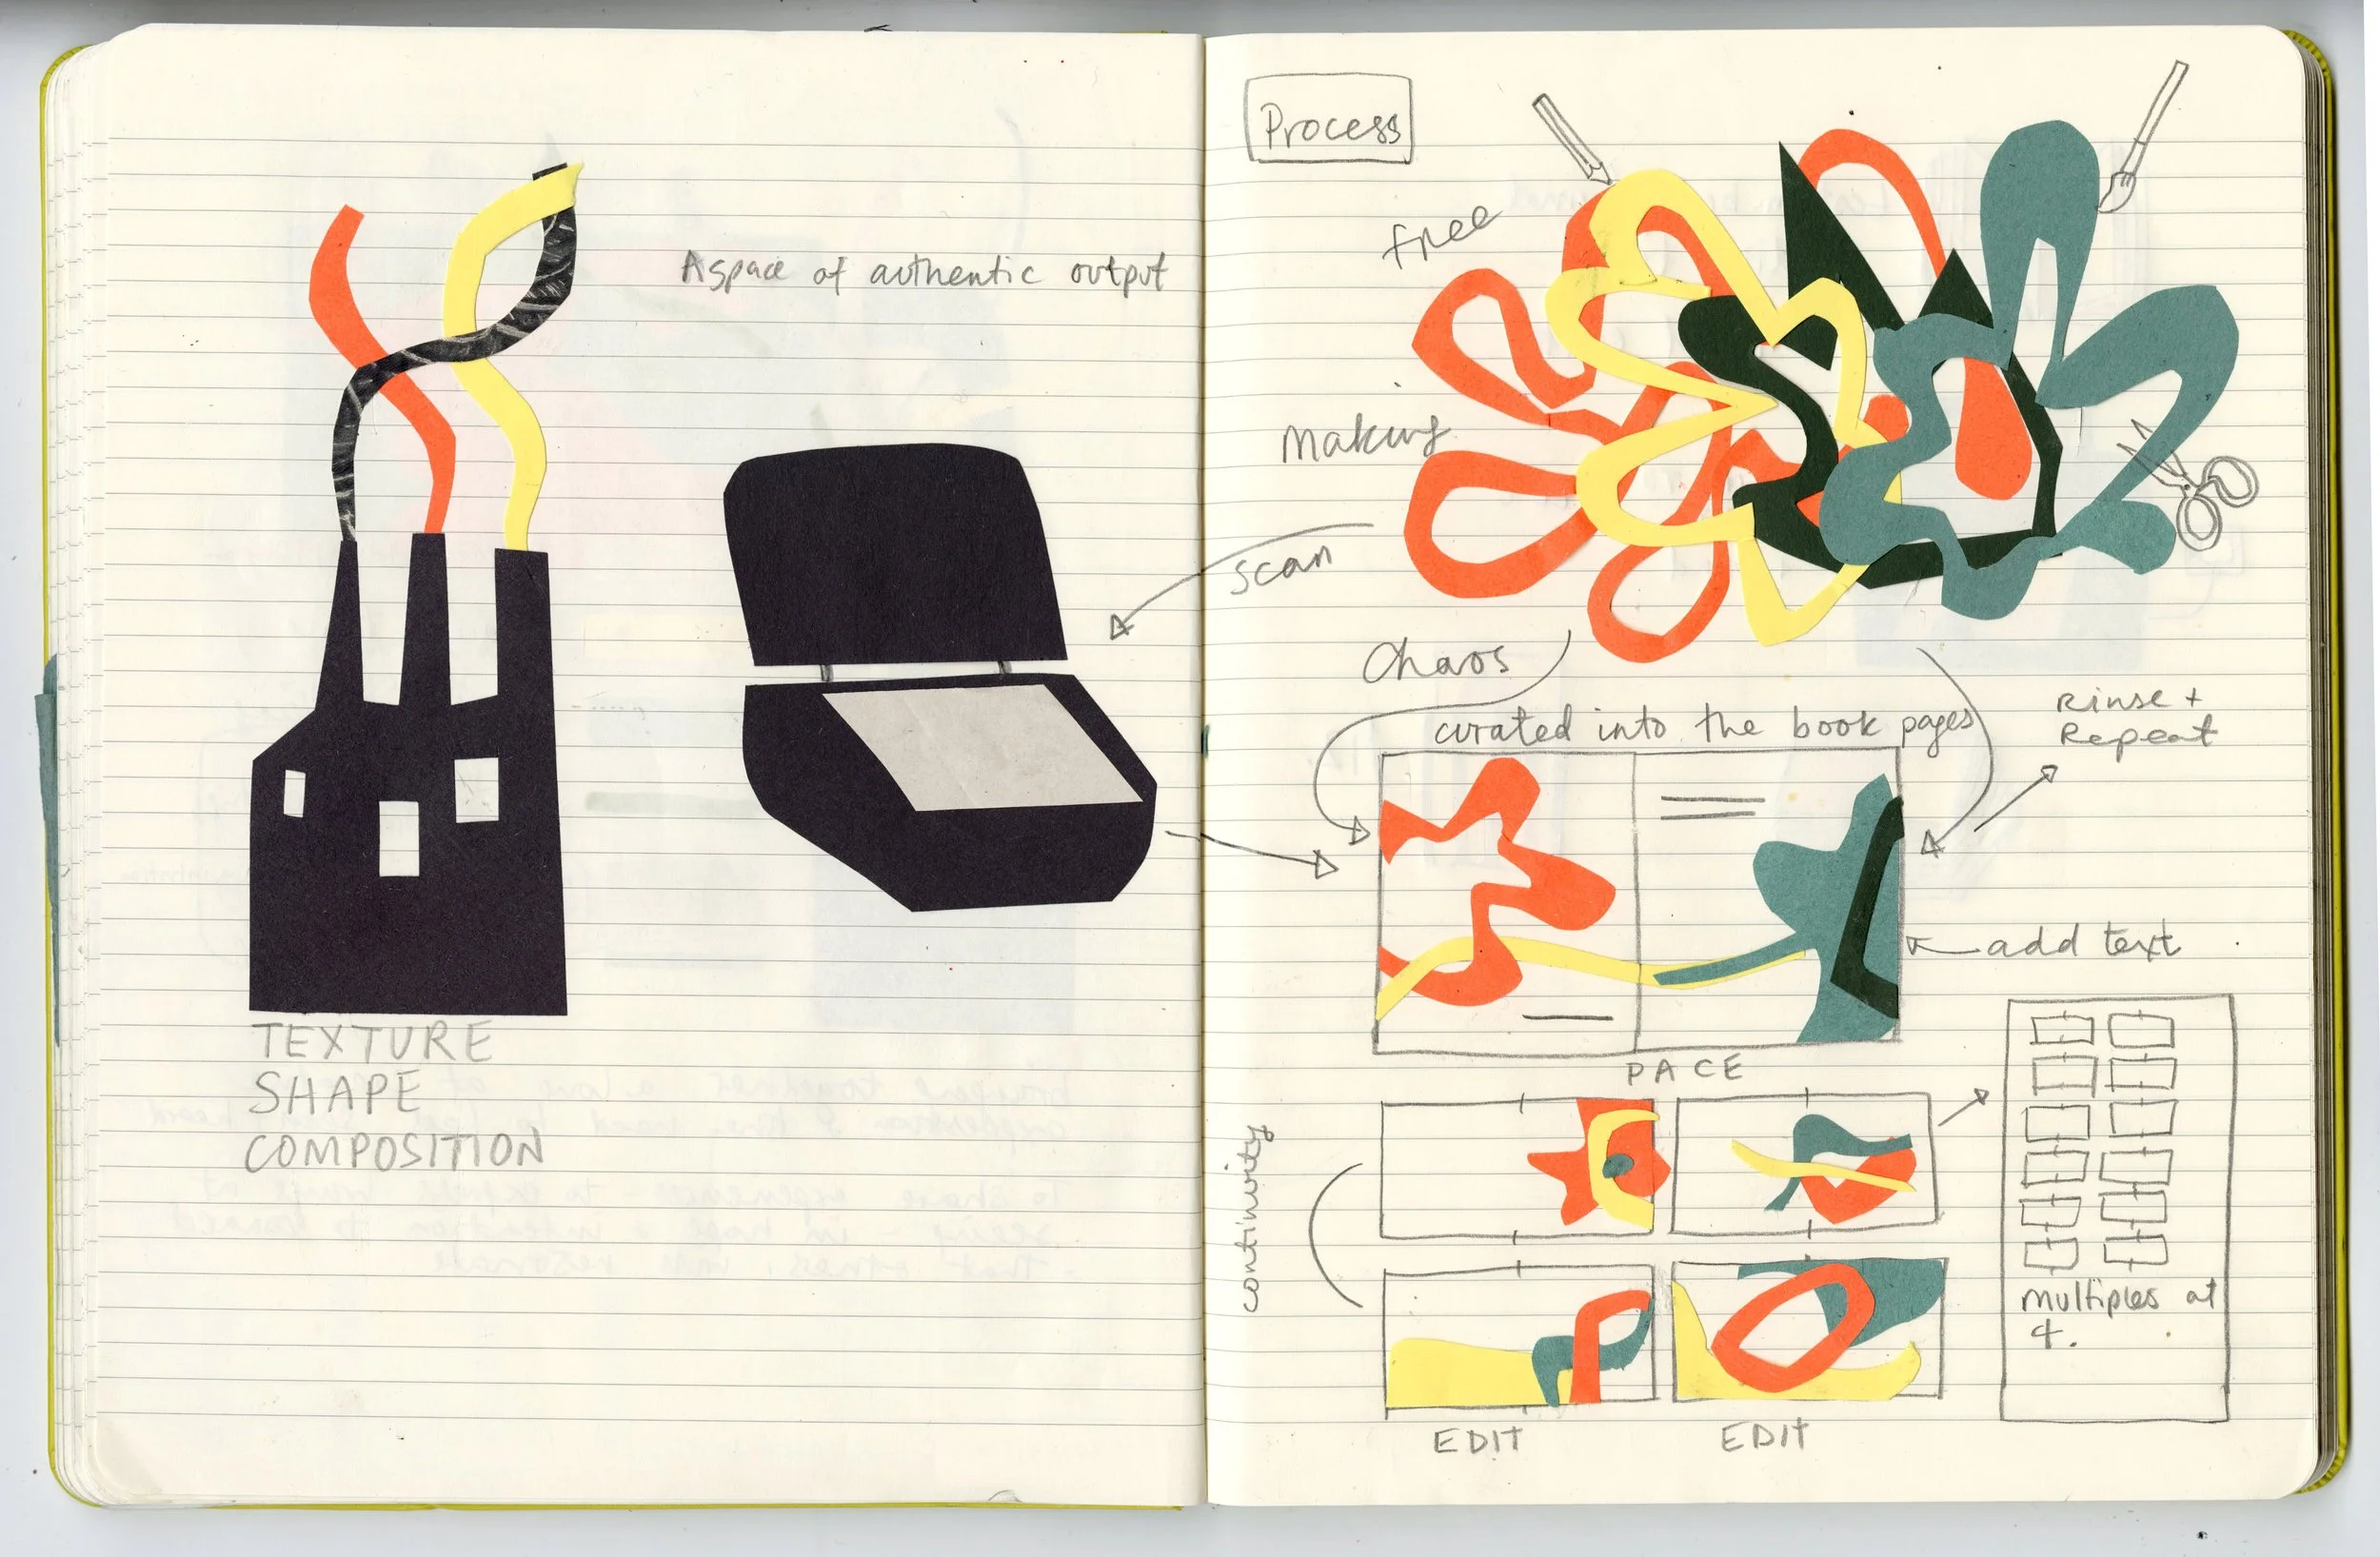 A space of authentic output
TEXTURE
SHAPE
COMPOSITION
Process
free
Making
scan
Chaos
curated into the book pages
Rinse +
Repeat
add text
PACE
continuity
EDIT
EDIT
multiples of
4.